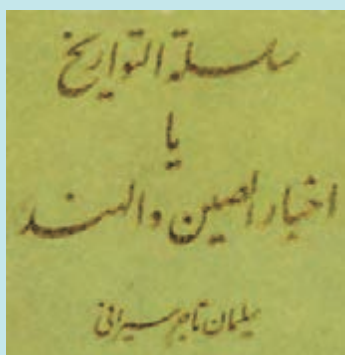 سلسلة التواریخ
یا
اخبار الصین و الهند
سلیمان تاجر سیرافی